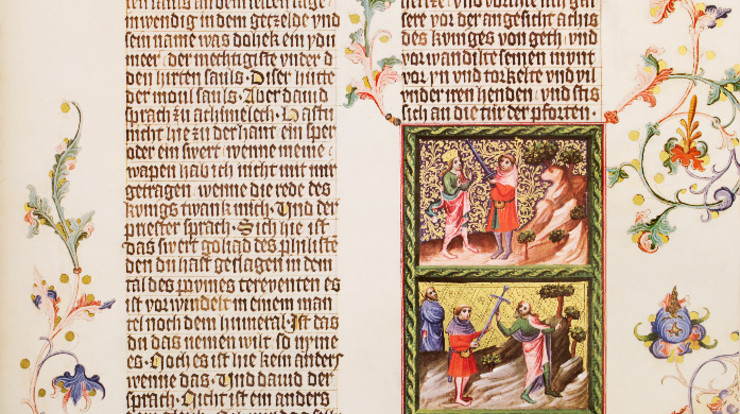 inwendig in dem getzelde vnd
sein name was dohek ein ydu
meer · der mechtigiste vnder d
den hirten sauls · Diser hutte
der moul sauls · Aber dauid
sprach zu achimelech · Hastu
nicht hie zu der hant ein sper
oder ein swert · wenne meine
wapen hab ich nicht mit mir
getragen · wenne die rede des
kunigs twank mich · Vnd der
priester sprach · Sich hie ist
das swert goliad des philiste
den du hast geslagen in dem
tal des pymes tereventen es
ist vorwindelt in einem man
tel noch dem humeral · Ist das
du das nemen wilt so nyme
es · Noch es ist hie kein anders
wenne das · Vnd dauid der
sprach · Nicht ist ein anders
sere vor der angesicht achis
des kuniges von geth · vnd
vorwandilte seinen munt
vor yn vnd torkelte vnd vil
vnder iren henden · vnd stis
sich an die tür der pforten ·